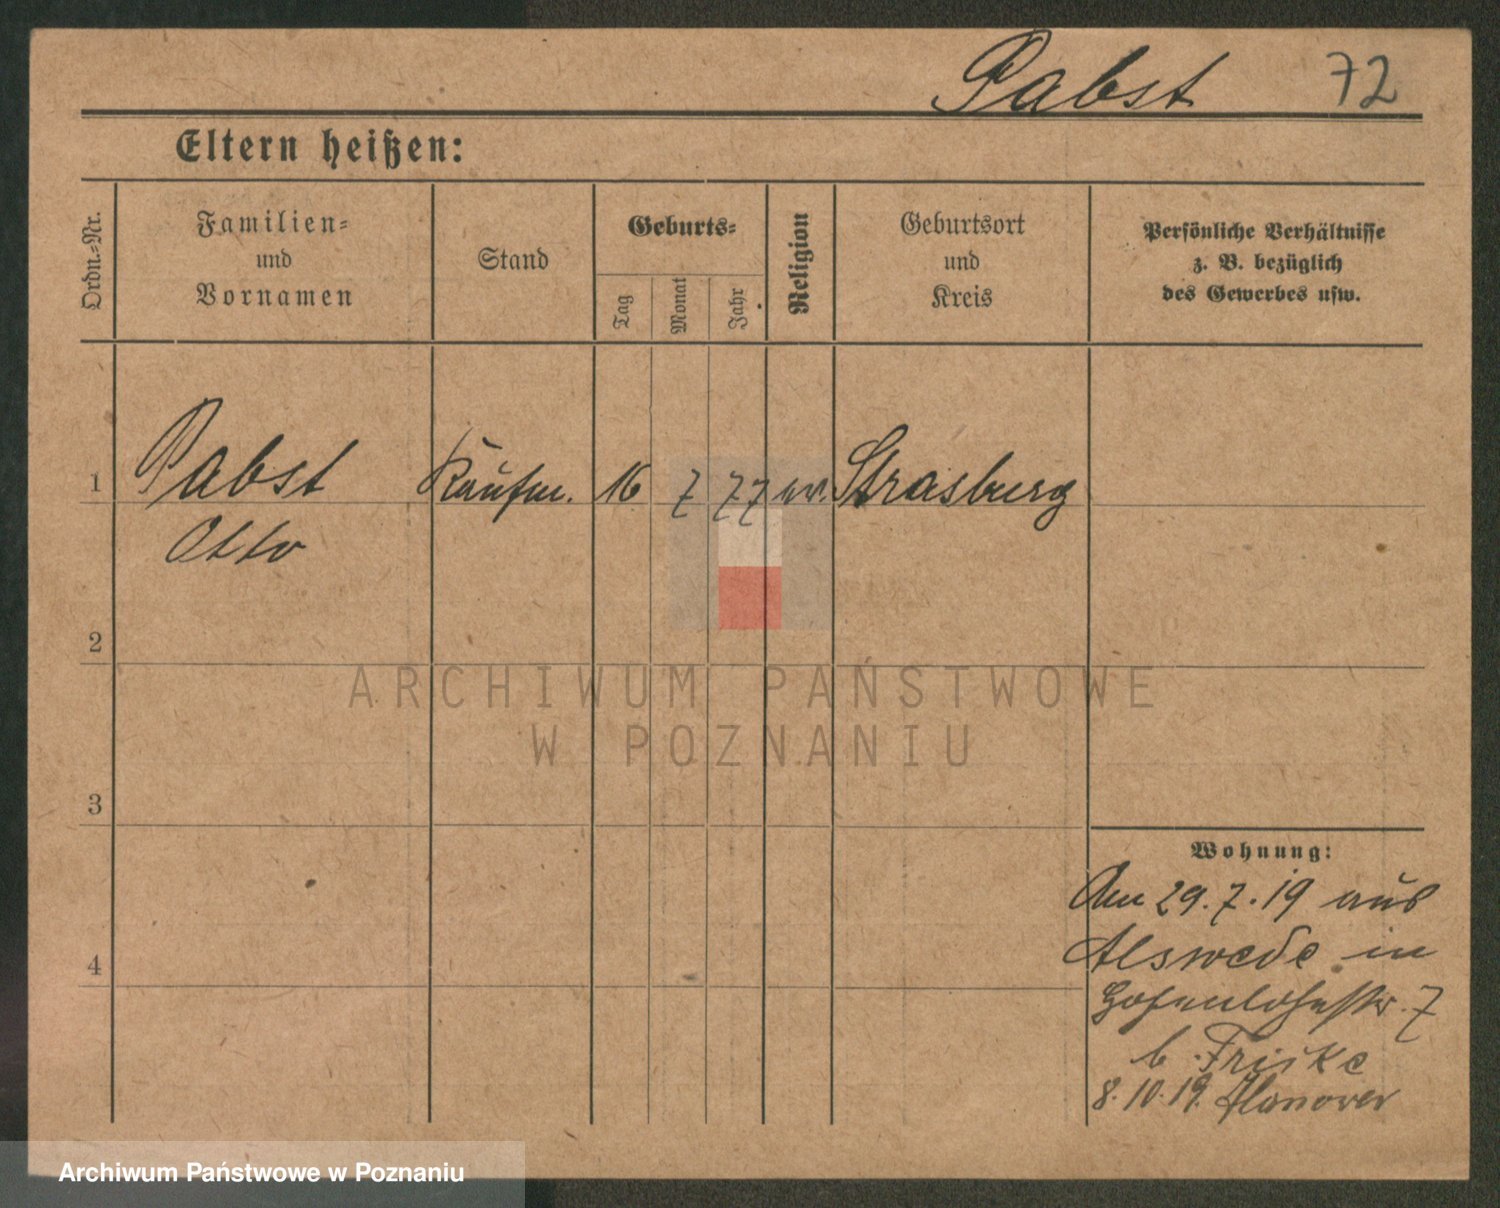 Pabst 72
Eltern heißen:
Ordn.-Nr.
Familien-
und
Vornamen
Stand
Geburts-
Tag
Monat
Jahr
Religion
Geburtsort
und
Kreis
Persönliche Verhältnisse
z. B. bezüglich
des Gewerbes usw.
1 Pabst Kaufm. 16 7 77 ev. Strasburg
Otto
2
3
4
Wohnung:
Am 29.7.19 aus
Alswede in
Hohenlohestr. 7
b. Friske
8.10.19. Hanover
ARCHIWUM PAŃSTWOWE
W POZNANIU
Archiwum Państwowe w Poznaniu